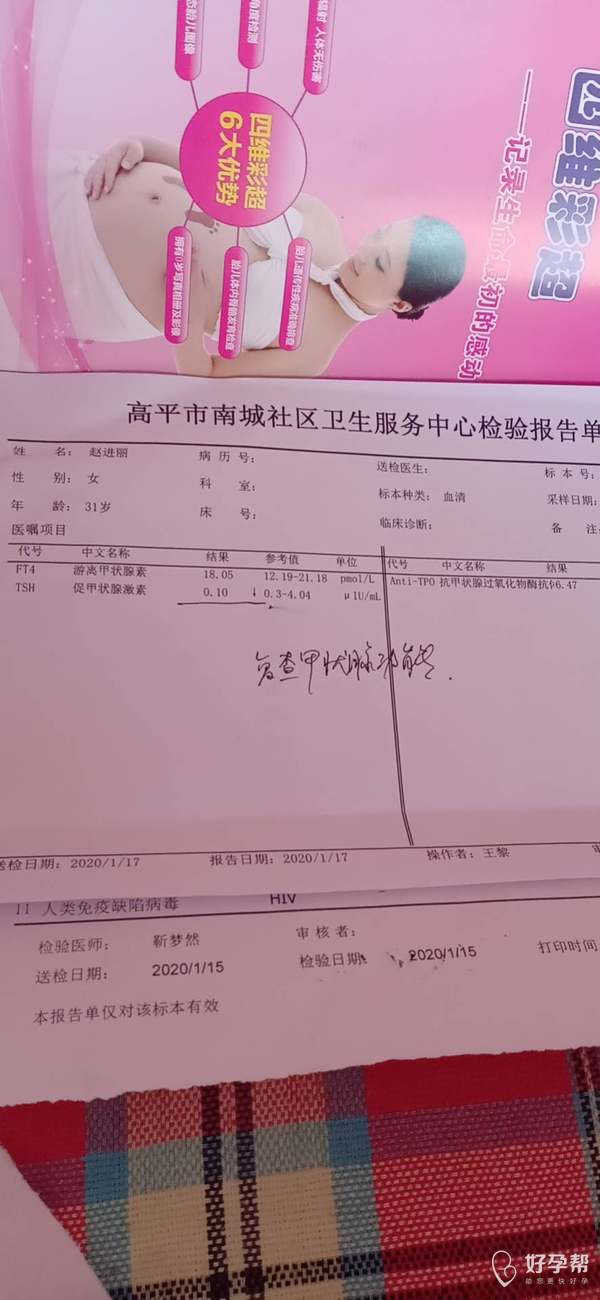 辐射 人体无伤害
角度检测
态胎儿图像
四维彩超
——记录生命最初的感动
四维彩超
6大优势
胎儿遗传性疾病准确排查
胎儿体内骨骼发育检查
拥有0岁写真相册及影像
高平市南城社区卫生服务中心检验报告单
姓 名: 赵进丽 病 历 号: 送检医生: 标 本 号:
性 别: 女 科 室: 标本种类: 血清 采样日期:
年 龄: 31岁 床 号: 临床诊断: 备 注:
医嘱项目
代号 中文名称 结果 参考值 单位 代号 中文名称 结果
FT4 游离甲状腺素 18.05 12.19-21.18 pmol/L Anti-TPO 抗甲状腺过氧化物酶抗体6.47
TSH 促甲状腺激素 0.10 ↓ 0.3-4.04 μIU/mL
复查甲状腺功能.
送检日期: 2020/1/17 报告日期: 2020/1/17 操作者: 王黎 审
11 人类免疫缺陷病毒 HIV
检验医师: 靳梦然 审 核 者:
送检日期: 2020/1/15 检验日期: 2020/1/15 打印时间
本报告单仅对该标本有效
好孕帮
助您更快好孕